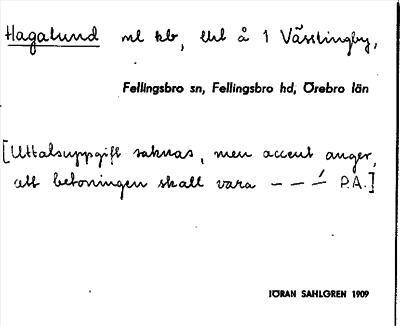 Hagalund ml kb, ekt å 1 Västlingby,
Fellingsbro sn, Fellingsbro hd, Örebro län
[Uttalsuppgift saknas, men accent anger,
att betoningen skall vara – – –́ P.A.]
JÖRAN SAHLGREN 1909